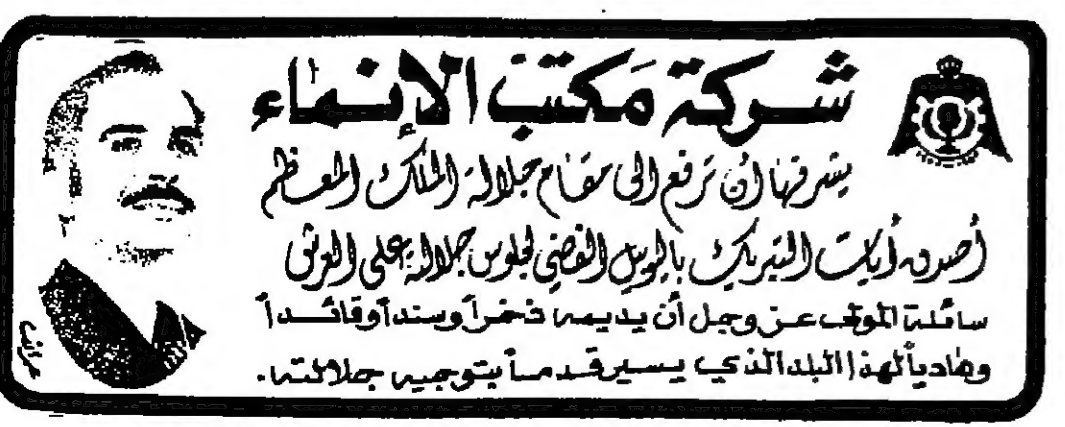 شركة مكتب الإنماء
يشرفها أن ترفع الى مقام جلالة الملك المعظم
أصدق آيات التبريك باليوبيل الفضي لجلوس جلالته على العرش
سائلة المولى عز وجل أن يديمه ذخراً وسنداً وقائداً
وهادياً لهذا البلد الذي يسير قدماً بتوجيه جلالته.